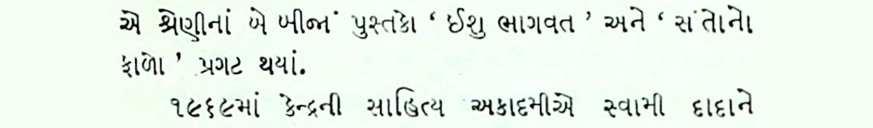 એ શ્રેણીનાં બે બીજાં પુસ્તકો ‘ ઈશુ ભાગવત ’ અને ‘ સંતોનો
ફાળો ’ પ્રગટ થયાં.
૧૯૬૯માં કેન્દ્રની સાહિત્ય અકાદમીએ સ્વામી દાદાને